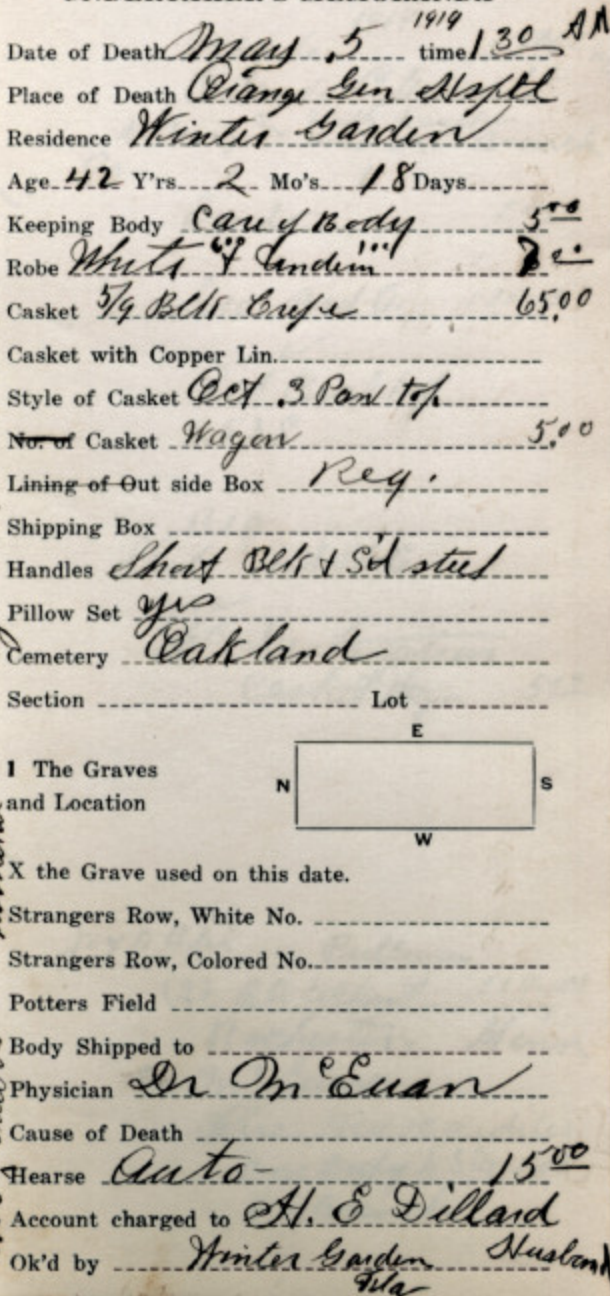 Date of Death May 5 1919 time 1 30 AM
Place of Death Orange Gen Hsptl
Residence Winter Garden
Age 42 Y'rs 2 Mo's 18 Days
Keeping Body Care of Body 5.00
Robe White
Casket 5/9 Blk Crepe 65.00
Casket with Copper Lin.
Style of Casket Oct. 3 Pan top
No. of Casket Wagon 5.00
Lining of Out side Box Reg.
Shipping Box
Handles Short Blk & Sd steel
Pillow Set yes
Cemetery Oakland
Section Lot
E
1 The Graves
N S
and Location
W
X the Grave used on this date.
Strangers Row, White No.
Strangers Row, Colored No.
Potters Field
Body Shipped to
Physician Dr McEuan
Cause of Death
Hearse Auto- 15 00
Account charged to H. E Dillard
Ok'd by Winter Garden Husband
Fla